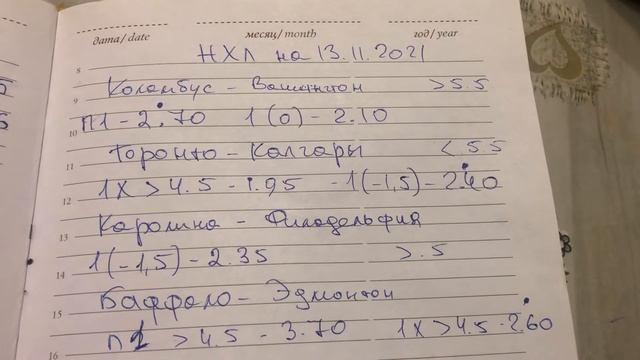 дата/ date месяц/ month год/ year
8 НХЛ на 13.11.2021
9 Коламбус - Вашингтон >5.5
10 П1 - 2.70 1(0) - 2.10
11 Торонто - Калгары <5.5
12 1X >4.5 - 1.95 - 1(-1,5) - 2.40
13 Каролина - Филадельфия
14 1(-1,5) - 2.35 >.5
15 Баффало - Эдмонтон
16 П1 >4.5 - 3.70 1X >4.5 - 2.60